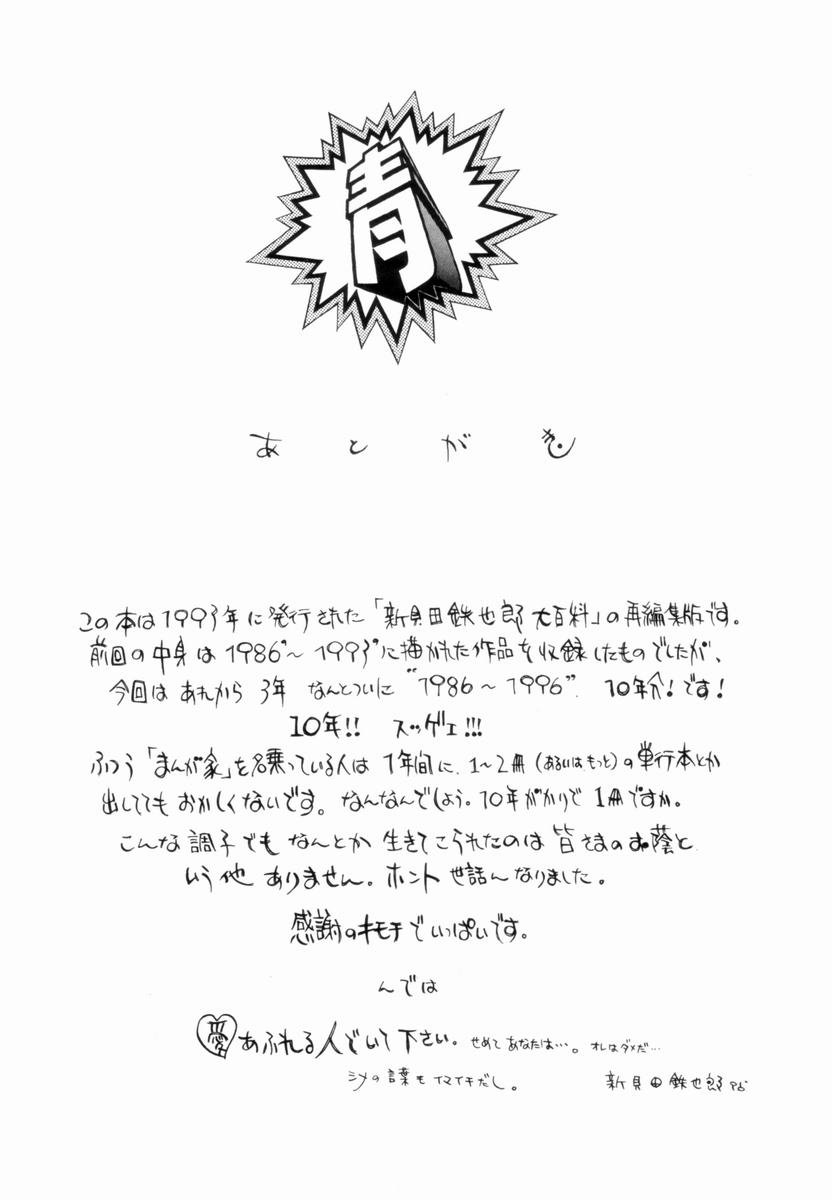 青
あとがき
この本は1993年に発行された「新貝田鉄也郎大百科」の再編集版です。
前回の中身は1986"～1993"に描かれた作品を収録したものでしたが、
今回はあれから3年なんとついに"1986～1996" 10年分!です!
10年!! スッゲェ!!!
ふつう「まんが家」を名乗っている人は1年間に、1～2冊(あるいはもっと)の単行本とか
出しててもおかしくないです。なんなんでしょう。10年がかりで1冊ですか。
こんな調子でもなんとか生きてこられたのは皆さまのお蔭と
いう他ありません。ホント世話んなりました。
感謝のキモチでいっぱいです。
んでは
愛あふれる人でいて下さい。せめてあなたは…。オレはダメだ…
シメの言葉もイマイチだし。 新貝田鉄也郎